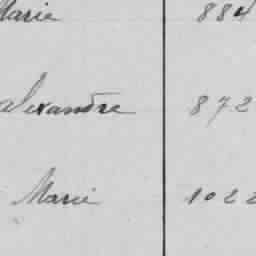 Marie 884
alexandre 872
Marie 1022